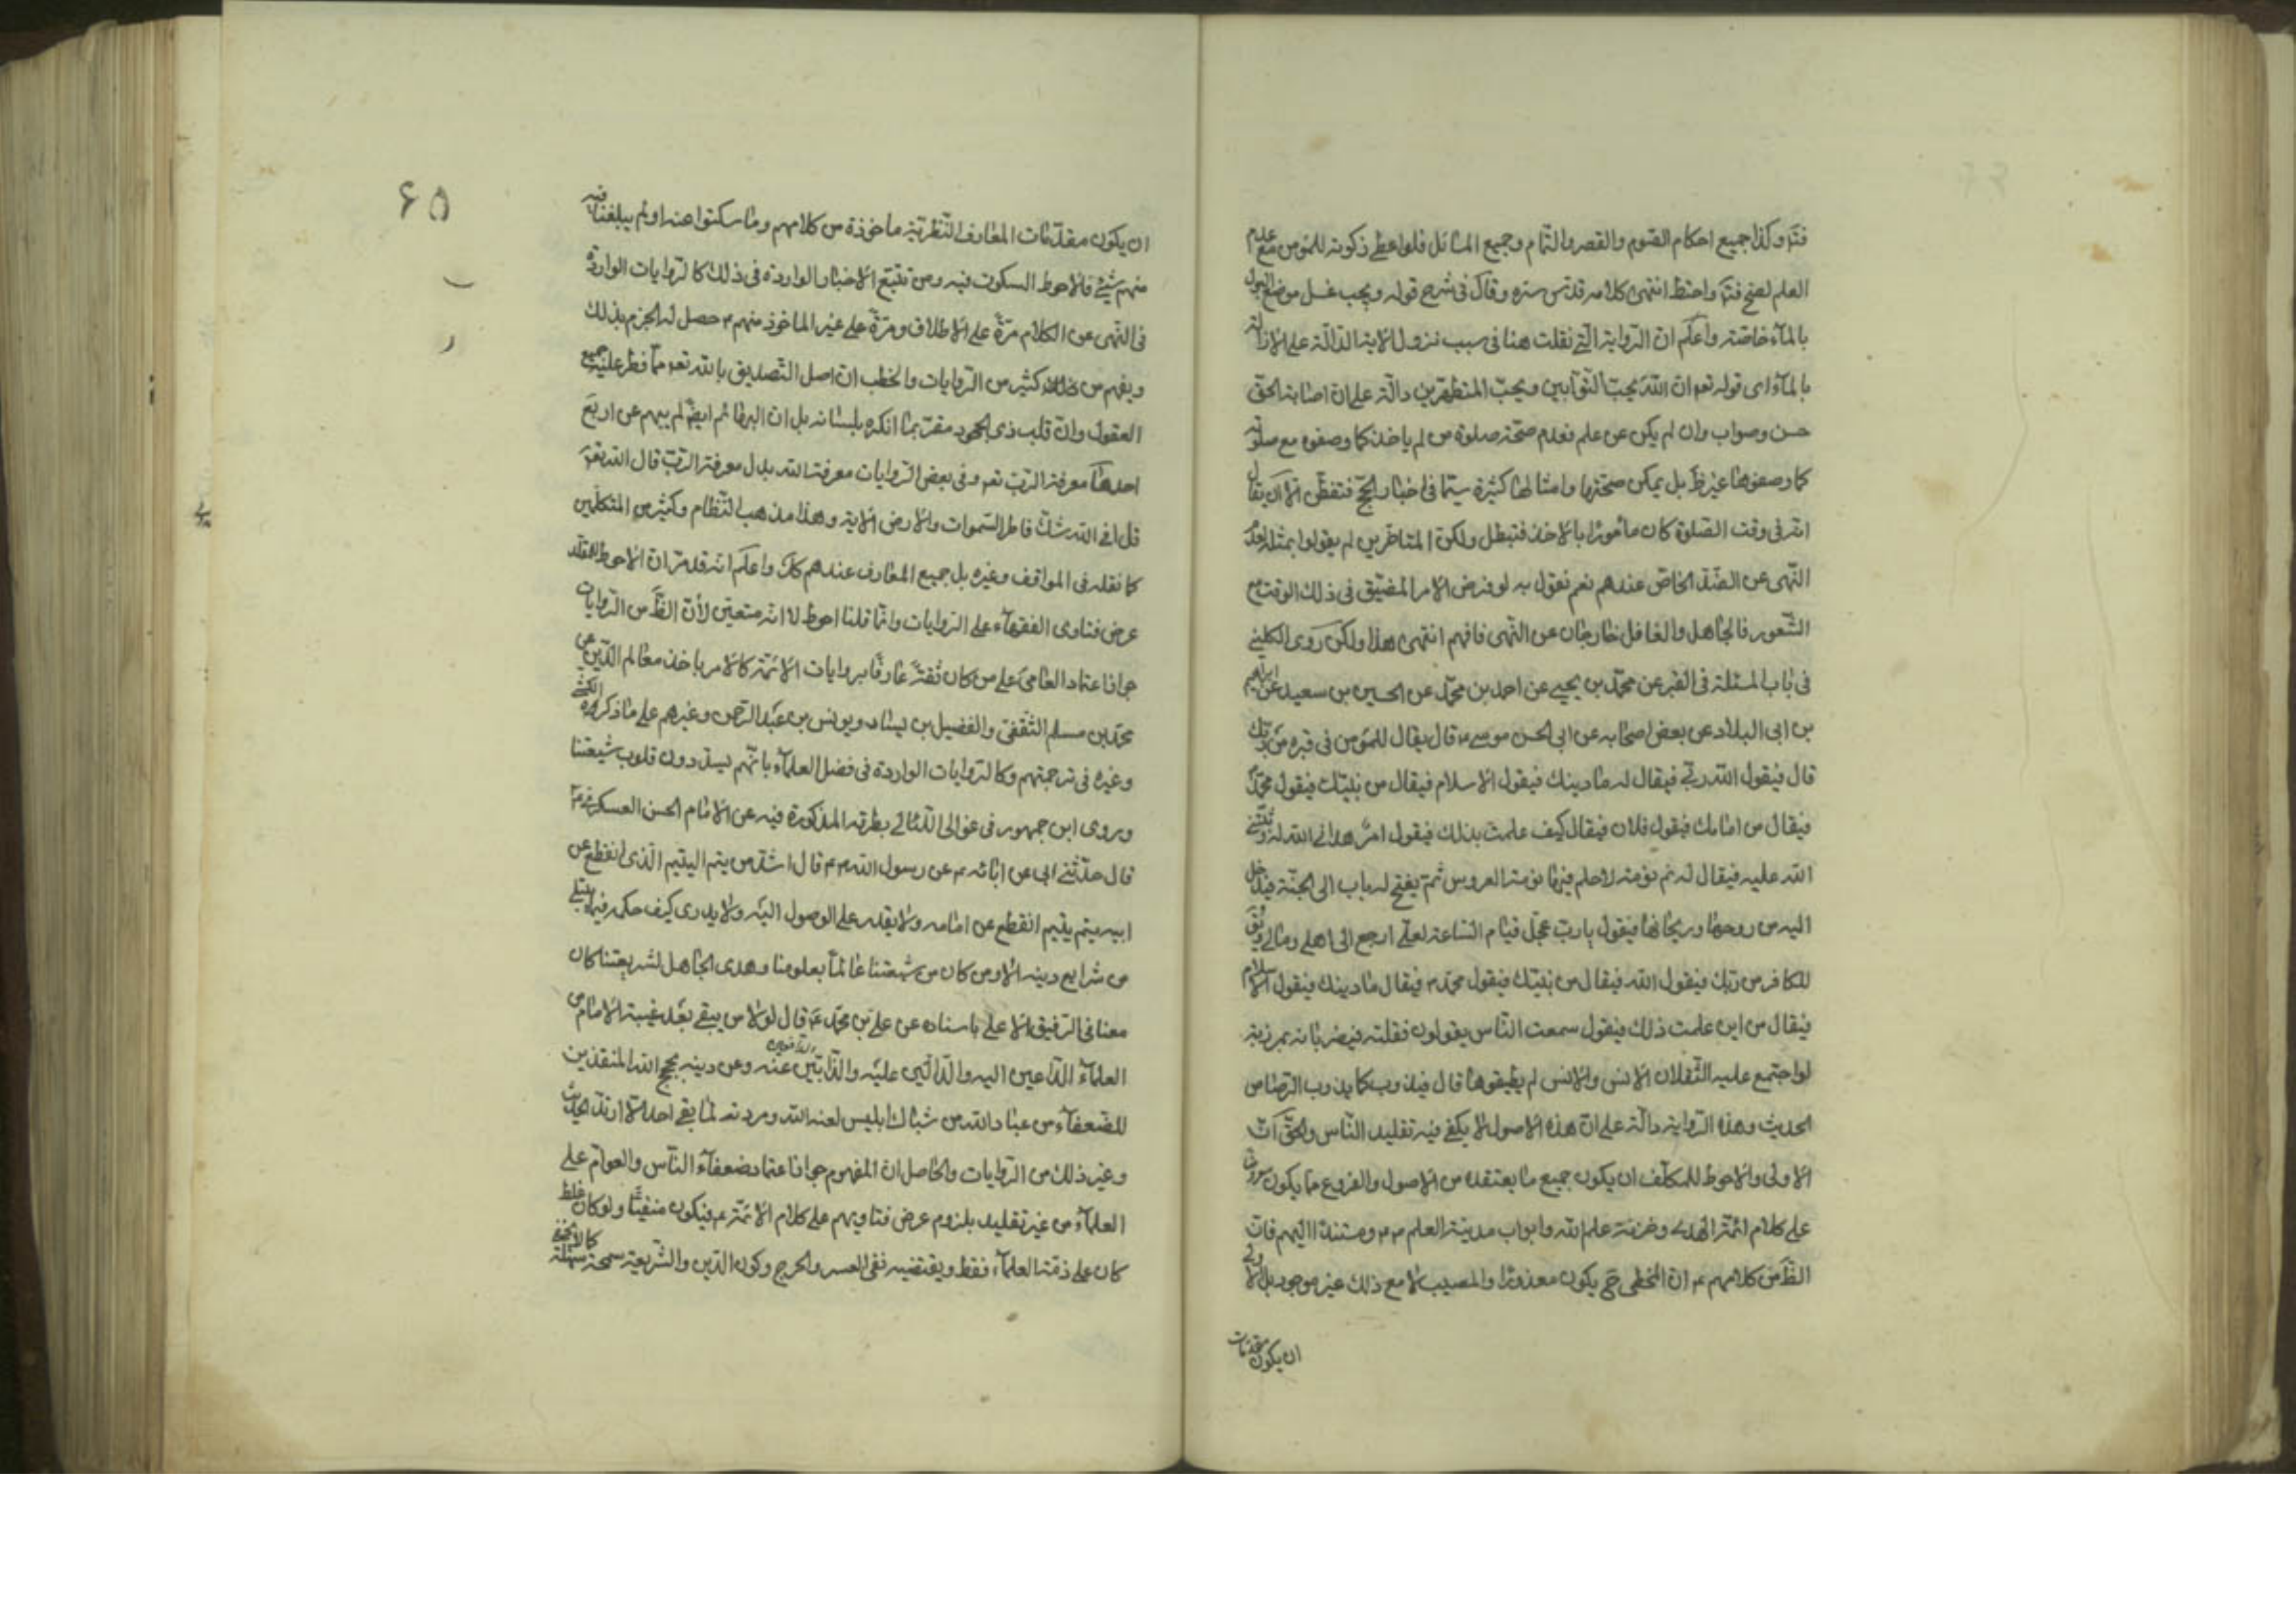 فتأمل وكذا جميع احكام الصوم والقصر والتمام وجميع المسائل فلو اعطى زكوته للمؤمن مع عدم
العلم لصح فتأمل واحتط انتهى كلامه قدس سره وقال في شرح قوله ويجب غسل موضع البول
بالماء خاصة واعلم ان الرواية التي نقلت هنا في سبب نزول الاية الدالة على الازالة
بالماء اى قوله تعم ان الله يحب التوابين ويحب المتطهرين دالة على ان اصابة الحق
حسن وصواب وان لم يكن عن علم فعدم صحة صلوة من لم ياخذ كما وصفوه مع صلوته
كما وصفوها غير ظ بل يمكن صحتها وامثالها كثيرة سيما في اخبار الحج فتفطن الا ان يقال
انه في وقت الصلوة كان مأمورا بالاخذ فتبطل ولكن المتاخرين لم يقولوا بمثله لعدم
النهى عن الضد الخاص عندهم نعم نقول به لو فرض الامر المضيق في ذلك الوقت مع
الشعور فالجاهل والغافل خارجان عن النهى فافهم انتهى هذا ولكن روى الكليني
في باب المسئلة في القبر عن محمد بن يحيى عن احمد بن محمد عن الحسين بن سعيد عن ابراهيم
بن ابى البلاد عن بعض اصحابه عن ابى الحسن موسى ع قال يقال للمؤمن في قبره من ربك
قال فيقول الله ربي فيقال له ما دينك فيقول الاسلام فيقال من نبيك فيقول محمد
فيقال من امامك فيقول فلان فيقال كيف علمت بذلك فيقول امر هداني الله له وثبتني
الله عليه فيقال له نم نومة لا حلم فيها نومة العروس ثم يفتح له باب الى الجنة فيدخل
اليه من روحها وريحانها فيقول يا رب عجل قيام الساعة لعلي ارجع الى اهلي ومالي ويق
للكافر من ربك فيقول الله فيقال من نبيك فيقول محمد ص فيقال ما دينك فيقول الاسلام
فيقال من اين علمت ذلك فيقول سمعت الناس يقولون فقلته فيضربانه بمرزبة
لو اجتمع عليه الثقلان الانس والانس لم يطيقوها قال فيذوب كما يذوب الرصاص
الحديث وهذه الرواية دالة على ان هذه الاصول لا يكفي فيه تقليد الناس والحق ان
الاولى والاحوط للمكلف ان يكون جميع ما يعتقده من الاصول والفروع مما يكون
على كلام ائمة الهدى وخزنة علم الله وابواب مدينة العلم ومستندا اليهم فان
الظ من كلامهم ع ان المخطى ح يكون معذورا والمصيب لا مع ذلك غير موجود بل الاولى
ان يكون مقدمات
٦٥
ان يكون مقدمات المعارف النظرية ماخوذة من كلامهم وما سكتوا عنه او لم يبلغنا فيه
منهم شيئ فالاحوط السكوت فيه ومن تتبع الاخبار الواردة في ذلك كالروايات الواردة
في النهى عن الكلام مرة على الاطلاق ومرة على غير الماخوذ منهم ع حصل له الجزم بذلك
ويفهم من كثير من الروايات والخطب ان اصل التصديق بالله تعم مما فطر عليه جميع
العقول وان قلب ذى الجحود مقر بما انكره بلسانه بل ان البهائم ايض لم يبهم عن اربع
احدها معرفة الرب تعم وفي بعض الروايات معرفة الله بدل معرفة الرب قال الله تعم
قل افي الله شك فاطر السموات والارض الاية وهذا مذهب النظام وكثير من المتكلمين
كما نقله في المواقف وغيره بل جميع المعارف عندهم كك واعلم انه قد مر ان الاحوط للمقلد
عرض فتاوى الفقهاء على الروايات وانما قلنا احوط لا انه متعين لأن الظ من الروايات
جواز اعتماد العامى على من كان ثقة عارفا بروايات الائمة كالامر باخذ معالم الدين من
محمد بن مسلم الثقفى والفضيل بن يسار ويونس بن عبد الرحمن وغيرهم على ما ذكره الكشي
وغيره في ترجمتهم وكالروايات الواردة في فضل العلماء بانهم يسددون قلوب شيعتنا
وروى ابن جمهور في غوالى اللئالي بطرقه المذكورة فيه عن الامام الحسن العسكرى ع
قال حدثني ابى عن ابائه ع عن رسول الله ص قال اشد من يتم اليتيم الذى انقطع عن
ابيه يتم يتيم انقطع عن امامه ولا يقدر على الوصول اليه ولا يدرى كيف حكمه فيما يبتلى
من شرايع دينه الا ومن كان من شيعتنا عالما بعلومنا وهدى الجاهل لشريعتنا كان
معنا في الرفيق الاعلى باسناده عن علي بن محمد ع قال لولا من يبقى بعد غيبة الامام من
العلماء الداعين اليه والدالين عليه والذابين عنه وعن دينه بحجج الله المنقذين
للضعفاء من عباد الله من شباك ابليس لعنه الله ومردته لما بقى احد الا ارتد الحديث
وغير ذلك من الروايات والحاصل ان المفهوم جواز اعتماد ضعفاء الناس والعوام على
العلماء من غير تقليد بلزوم عرض فتاويهم على كلام الائمة ع فيكون منفيا ولو كان غلط
كان على ذمة العلماء فقط ويقتضيه نفى العسر والحرج وكون الدين والشريعة سمحة سهلة